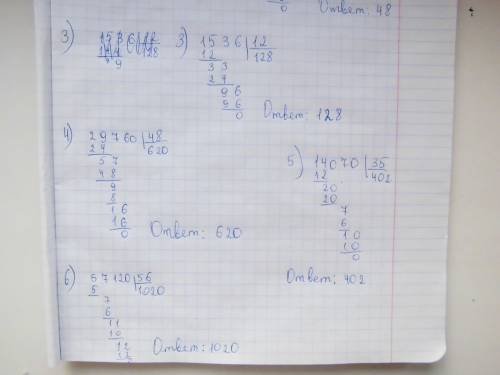 0 Ответ: 48
3) 3) 1536 | 12
12 128
33
24
96
96
0 Ответ: 128
4) 29760 | 48
24 620
57
48
9
8
16
16
0 Ответ: 620
5) 14070 | 35
12 402
20
20
7
6
10
10
0
Ответ: 402
6) 57120 | 56
5 1020
7
6
11
10
12
12
Ответ: 1020